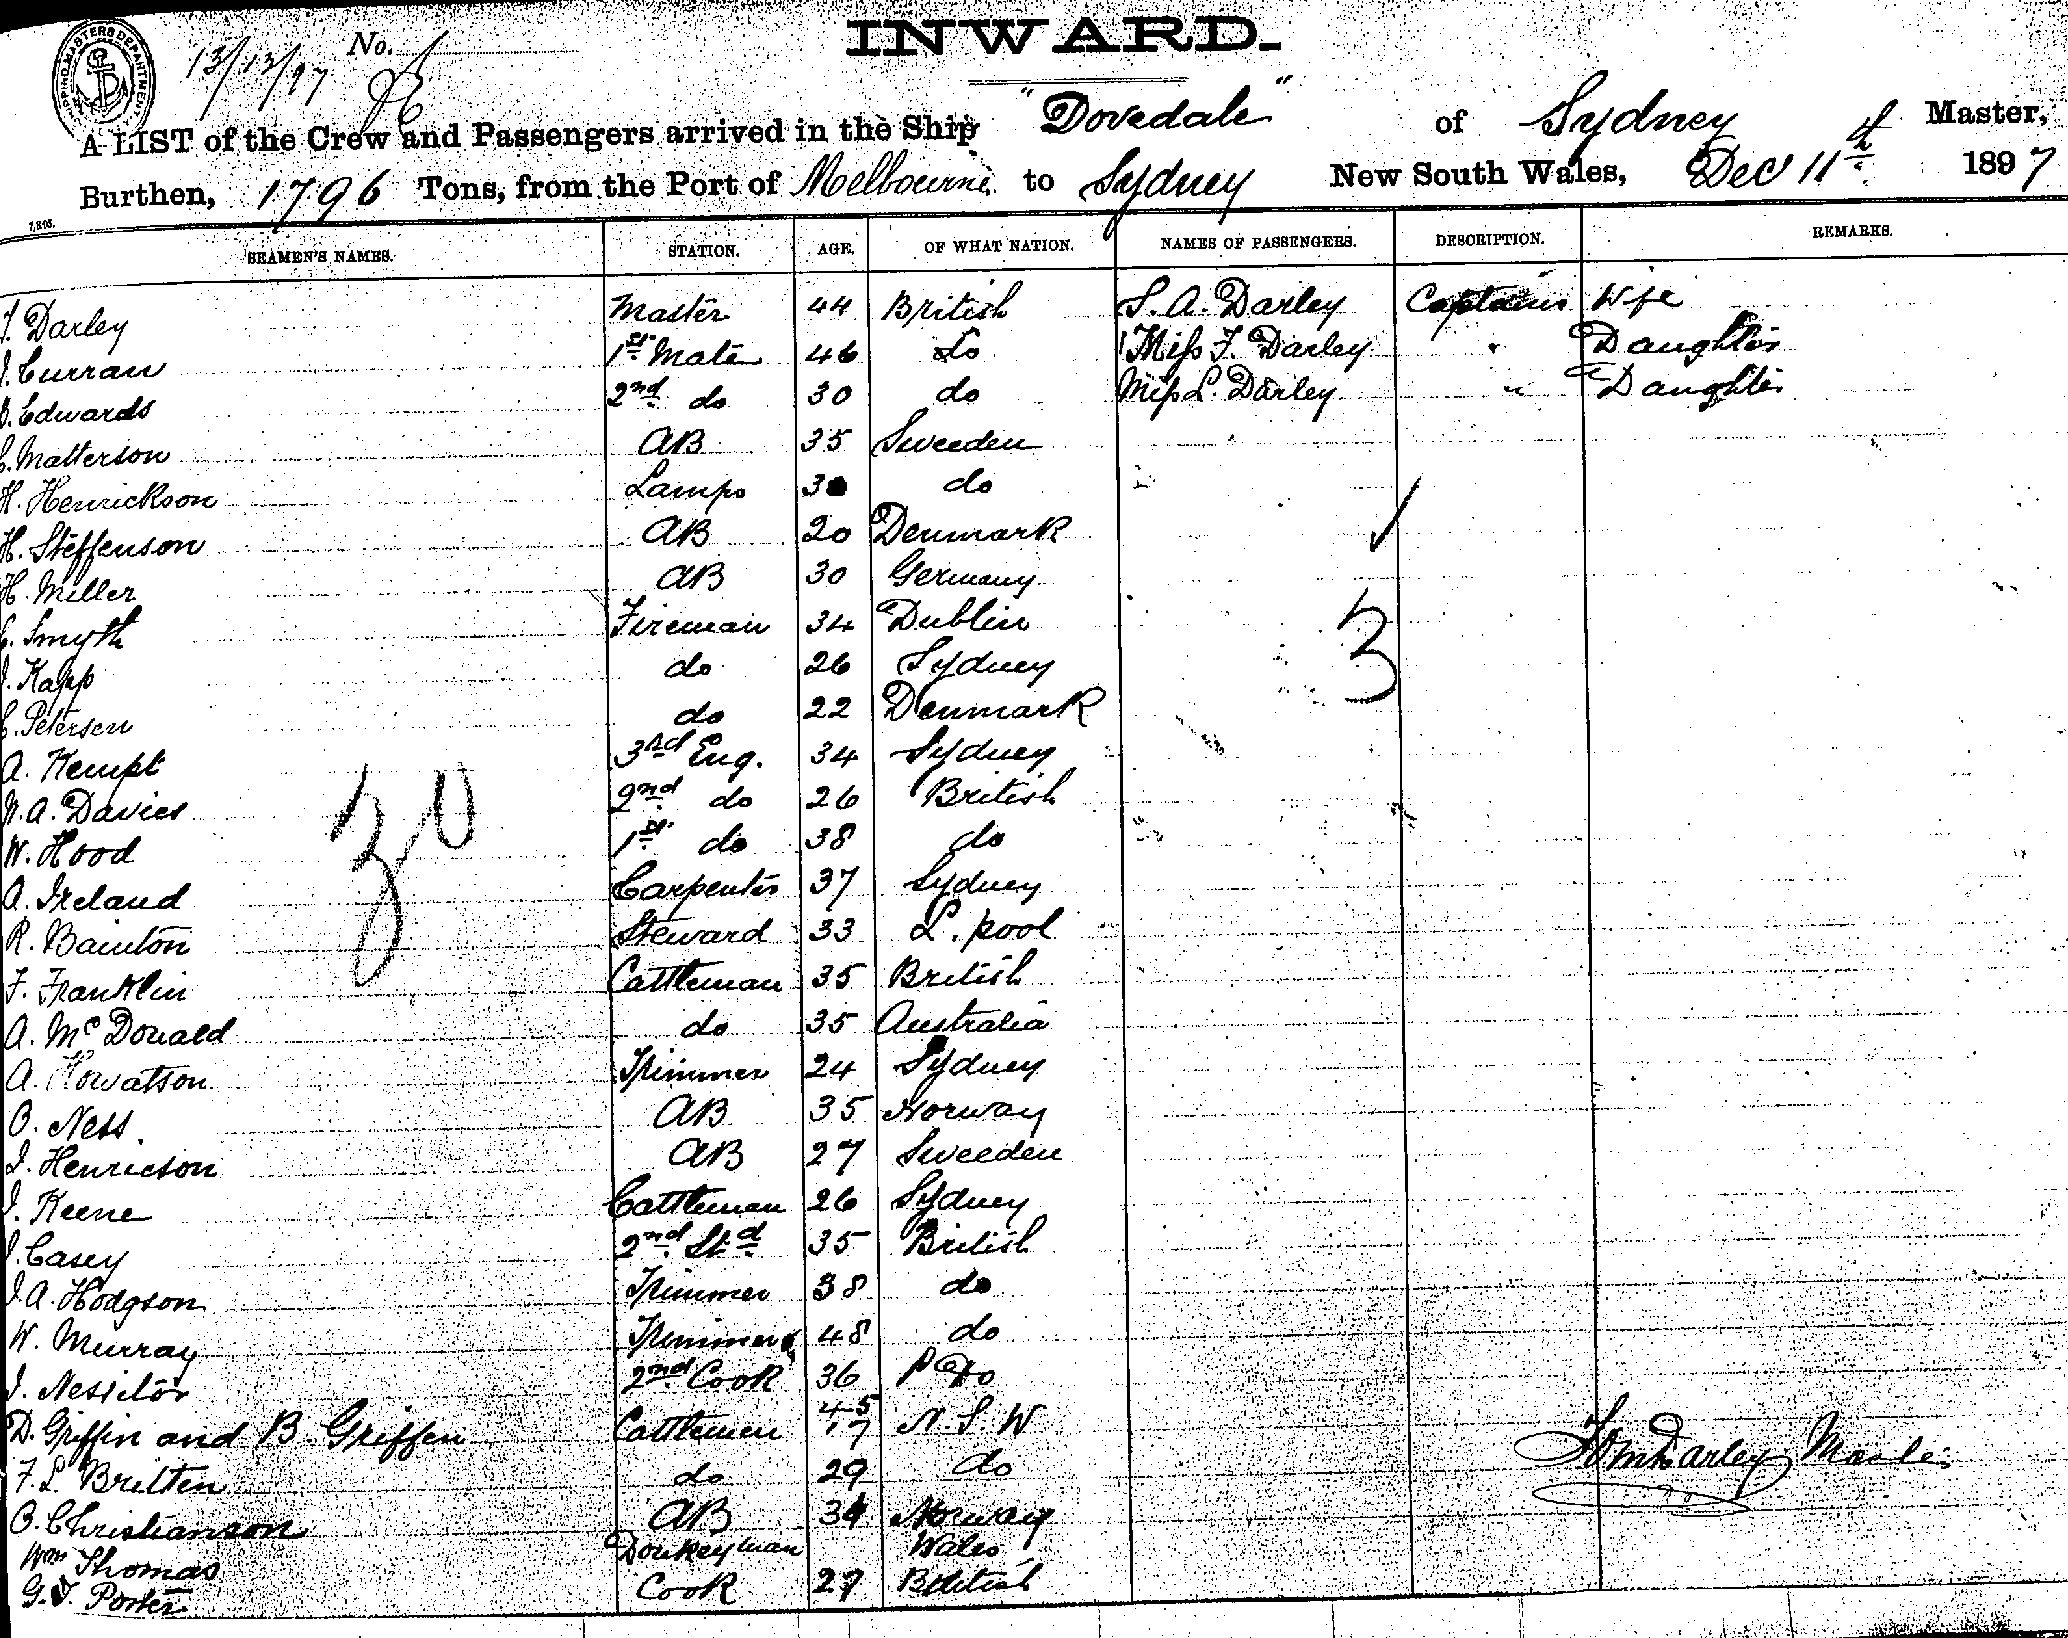 INWARD.
SHIPPING MASTERS DEPARTMENT
13/12/97 No.
A LIST of the Crew and Passengers arrived in the Ship "Dovedale" of Sydney Master,
Burthen, 1796 Tons, from the Port of Melbourne to Sydney New South Wales, Dec 11th 1897
SEAMEN'S NAMES. STATION. AGE. OF WHAT NATION. NAMES OF PASSENGERS. DESCRIPTION. REMARKS.
Darley Master 44 British S. A. Darley Captains Wife
Curran 1st Mate 46 do Miss F. Darley " Daughter
Edwards 2nd do 30 do Miss L. Darley " Daughter
Matterson AB 35 Sweeden
H. Henrickson Lamps do
H. Steffenson AB 20 Denmark
H. Miller AB 30 Germany
Smyth Fireman 34 Dublin
Kapp do 26 Sydney
Petersen do 22 Denmark
3
A. Kempt 3rd Eng. 34 Sydney
W. A. Davies 2nd do 26 British
W. Hood 1st do 38 do
30
A. Ireland Carpenter 37 Sydney
R. Bainton Steward 33 L. pool
F. Franklin Cattleman 35 British
A. McDonald do 35 Australia
A. Howatson Trimmer 24 Sydney
O. Ness AB 35 Norway
I. Henricson AB 27 Sweeden
J. Keene Cattleman 26 Sydney
J. Casey 2nd Std 35 British
J. A. Hodgson Trimmer 38 do
W. Murray Trimmer 48 do
J. Nessitor 2nd Cook 36 do
D. Griffin and B. Griffen Cattlemen 45 17 N. S. W
F. L. Britten do 29 do
O. Christianson AB Norway
Wm Thomas Donkeyman Wales
G. J. Porter Cook 27 British
Darley Master